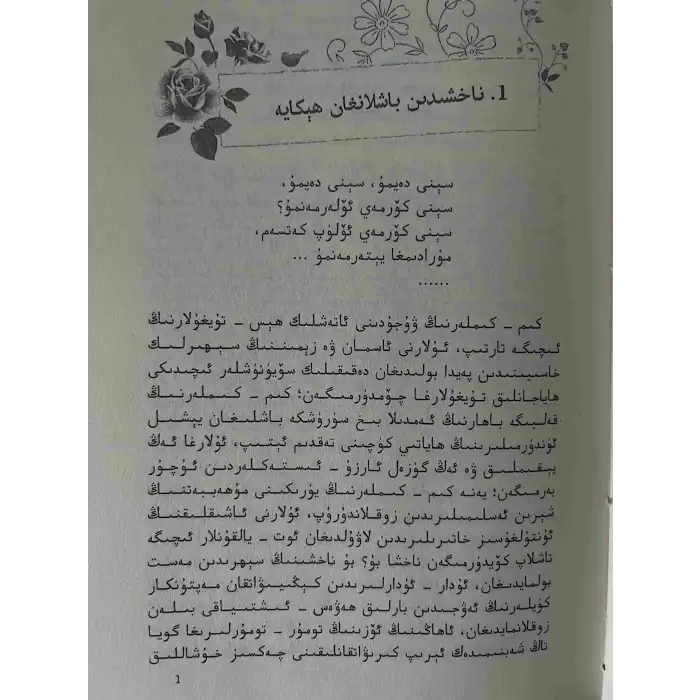 1. ناخشىدىن باشلانغان ھېكايە
سېنى دەيمۇ، سېنى دەيمۇ،
سېنى كۆرمەي ئۆلەرمەنمۇ؟
سېنى كۆرمەي ئۆلۈپ كەتسەم،
مۇرادىمغا يېتەرمەنمۇ ...
......
كىم - كىملەرنىڭ ۋۇجۇدىنى ئاتەشلىك ھېس - تۇيغۇلارنىڭ
ئىچىگە تارتىپ، ئۇلارنى ئاسمان ۋە زېمىننىڭ سېھىرلىك
خاسىيىتىدىن پەيدا بولىدىغان دەقىقىلىك سۆيۈنۈشلەر ئىچىدىكى
ھاياجانلىق تۇيغۇلارغا چۆمدۈرمىگەن؛ كىم - كىملەرنىڭ
قەلبىگە باھارنىڭ ئەمدىلا بىخ سۈرۈشكە باشلىغان يېشىل
ئۈندۈرمىلىرىنىڭ ھاياتىي كۈچىنى تەقدىم ئېتىپ، ئۇلارغا ئەڭ
يېقىملىق ۋە ئەڭ گۈزەل ئارزۇ - ئىستەكلەردىن ئۇچۇر
بەرمىگەن؛ يەنە كىم - كىملەرنىڭ يۈرىكىنى مۇھەببەتنىڭ
شېرىن ئەسلىمىلىرىدىن زوقلاندۇرۇپ، ئۇلارنى ئاشىقلىقنىڭ
ئۇنتۇلغۇسىز خاتىرىلىرىدىن لاۋۇلدىغان ئوت - يالقۇنلار ئىچىگە
تاشلاپ كۆيدۈرمىگەن ناخشا بۇ؟ بۇ ناخشىنىڭ سېھرىدىن مەست
بولمايدىغان، ئۇدار - ئۇدارلىرىدىن كېڭىيىۋاتقان مەپتۇنكار
كۈيلەرنىڭ ئەۋجىدىن بارلىق ھەۋەس - ئىشتىياقى بىلەن
زوقلانمايدىغان، ئاھاڭىنىڭ ئۆزىنىڭ تومۇر - تومۇرلىرىغا گويا
تاڭ شەبنىمىدەك ئېرىپ كىرىۋاتقانلىقىنى چەكسىز خۇشاللىق
1